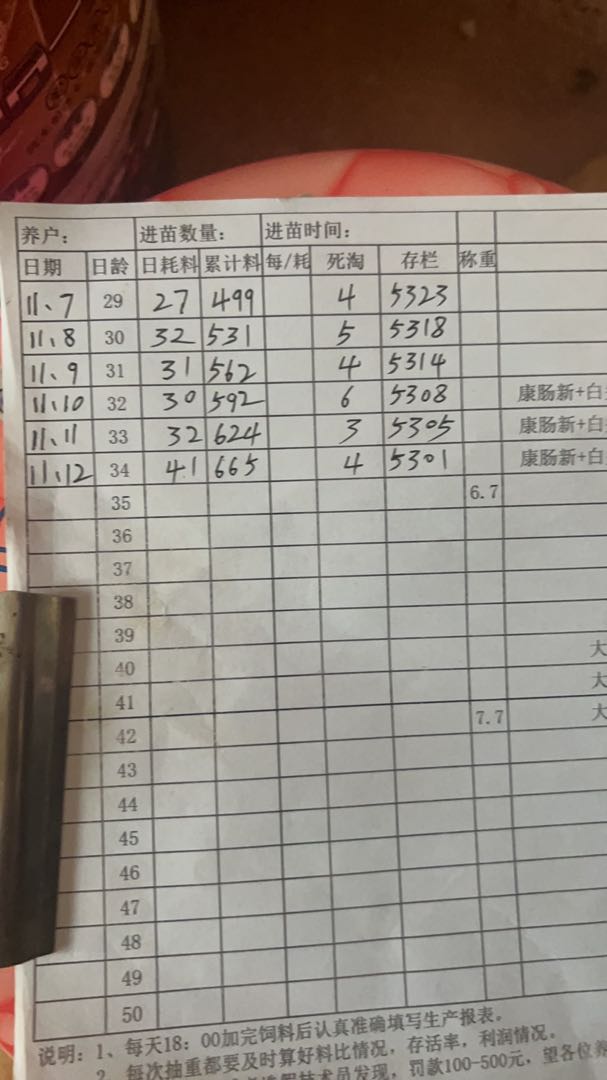 养户： 进苗数量： 进苗时间：
日期 日龄 日耗料 累计料 每/耗 死淘 存栏 称重
11、7 29 27 499 4 5323
11、8 30 32 531 5 5318
11、9 31 31 562 4 5314
11、10 32 30 592 6 5308 康肠新+白
11、11 33 32 624 3 5305 康肠新+白
11、12 34 41 665 4 5301 康肠新+白
35 6.7
36
37
38
39
40 大
41 大
42 7.7 大
43
44
45
46
47
48
49
50
说明：1、每天18：00加完饲料后认真准确填写生产报表。
2、每次抽重都要及时算好料比情况，存活率，利润情况。
技术员发现，罚款100-500元，望各位养